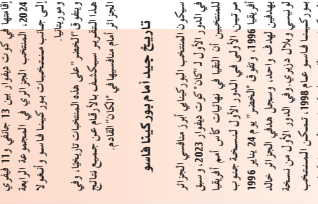 إقامتها في كوت ديفوار بين 13 جانفي و11 فيفري
2024، المنتخب الجزائري في المجموعة الرابعة
إلى جانب منتخبات بوركينا فاسو وأنغولا
وموريتانيا.
ويتفوق "الخضر" على هذه المنتخبات تاريخيا، وفي
هذا التقرير سيكشف بالأرقام عن جميع نتائج
الجزائر أمام منافسيها في "الكان" القادم.
تاريخ جيد أمام بوركينا فاسو
سيكون المنتخب البوركينابي أبرز منافسي الجزائر
في الدور الأول لـ"كان" كوت ديفوار 2023، وسبق
للمنتخبين أن التقيا في نهائيات كأس أمم أفريقيا
مرتين، الأولى في الدور الأول لنسخة جنوب
أفريقيا 1996، وتفوق "الخضر" يوم 24 يناير 1996
بهدفين لهدف واحد، وسجل هدفي الجزائر خالد
لونيسي وبلال دزيري. وفي الدور الأول من نسخة
بوركينا فاسو عام 1998، تمكن المنتخب